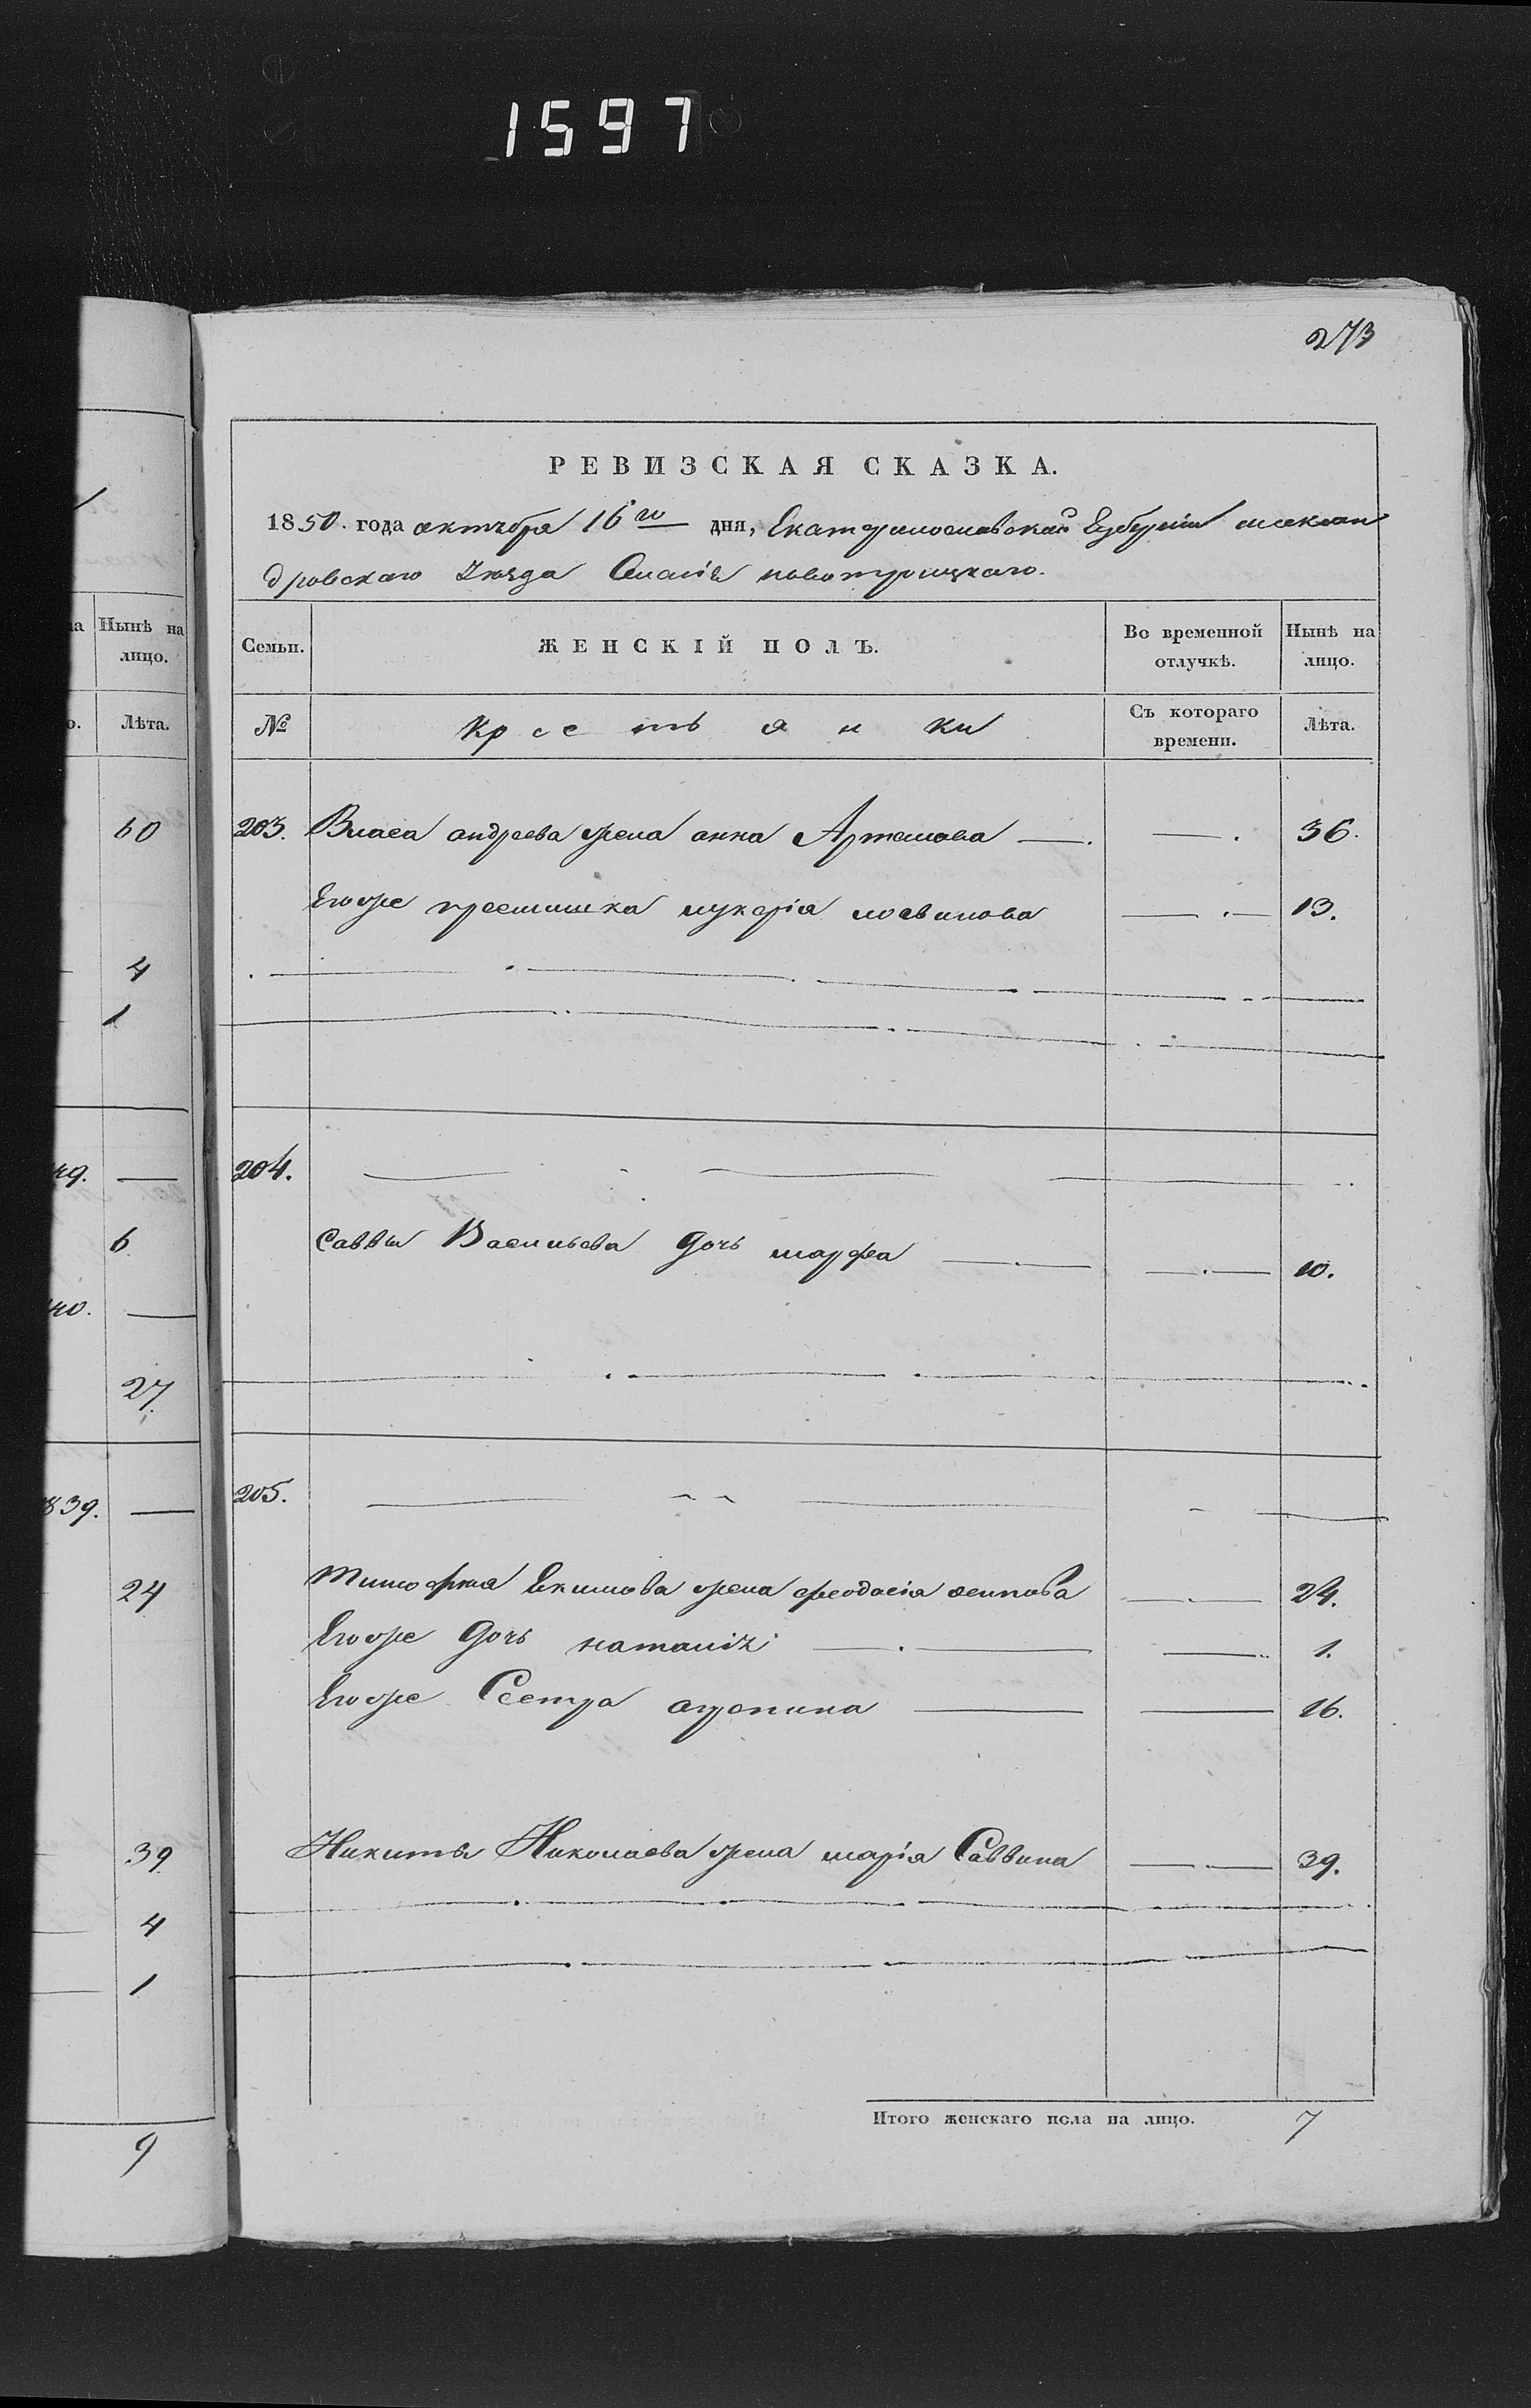 1597
273
РЕВИЗСКАЯ СКАЗКА.
1850. года октъбря 16го дня, Екатеринославской Губерніи алексан
дровскаго Уюзда Селенія новотроицкаго.
на
Нынѣ на лицо.
Семьи.
ЖЕНСКІЙ ПОЛЪ.
Во временной отлучкѣ.
Нынѣ на лицо.
о.
Лѣта.
№
Крестьянки
Съ котораго времени.
Лѣта.
60
203. Власа андреева жена анна Артемова — — . 36.
Егоже племяшка лукерія логвинова — . — 13.
4
1
49. —
204.
6
Саввы Васильева дочь марфа — . — — . — 10.
40. —
27.
839. —
205.
24
Тимофея Екимова жена феодосія осипова — . — 24.
Егоже дочь наталія — . — — 1.
Егоже Сестра агрепина — — 16.
39
Никиты Николаева жена марія Саввина — . — 39.
4
1
Итого женскаго пола на лицо. 7
9